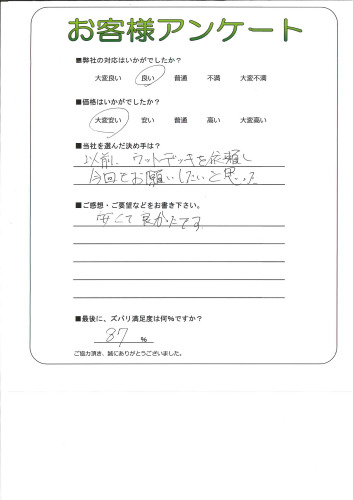 お客様アンケート
■弊社の対応はいかがでしたか？
大変良い 良い 普通 不満 大変不満
■価格はいかがでしたか？
大変安い 安い 普通 高い 大変高い
■当社を選んだ決め手は？
以前、ウットデッキを依頼し
今回もお願いしたいと思った
■ご感想・ご要望などをお書き下さい。
安くて良かたです
■最後に、ズバリ満足度は何%ですか？
87 %
ご協力頂き、誠にありがとうございました。